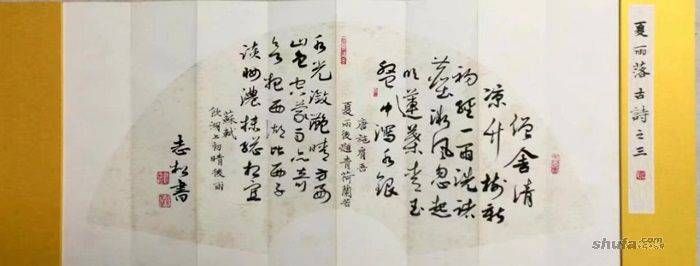 夏雨落古詩之三
僧舍清
涼竹樹新
初經一雨洗諸
塵微風忽起
吹蓮葉青玉
盤中瀉水銀
唐施肩吾
夏雨後題青荷蘭若
水光瀲灩晴方好
山色空蒙雨亦奇
欲把西湖比西子
淡妝濃抹總相宜
蘇軾
飲湖上初晴後雨
志松書
shufa.com